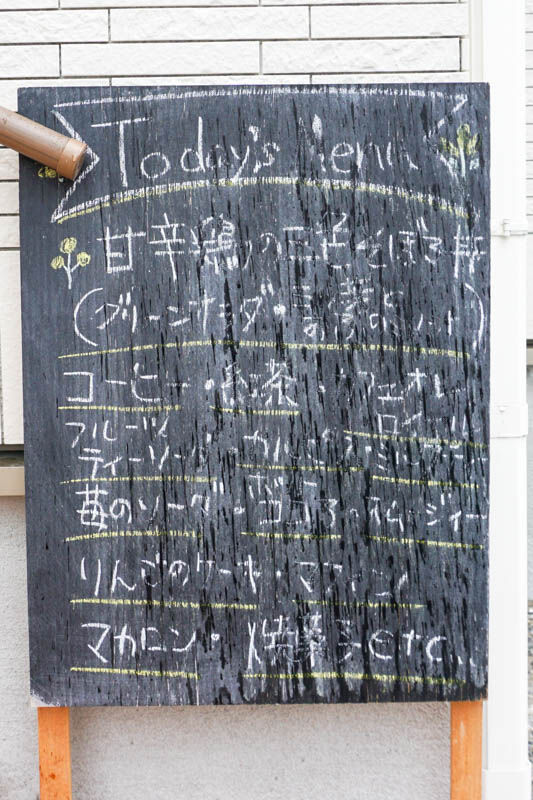 Today's Menu
甘辛鶏の三色そぼろ丼
(グリーンサラダ・デザート)
コーヒー・紅茶・カフェオレ
フルーツ
ティーソーダ・カルピス・ロイヤルミルクティー
苺のソーダ・スムージー
りんごのケーキ・マフィン
マカロン・焼菓子etc..